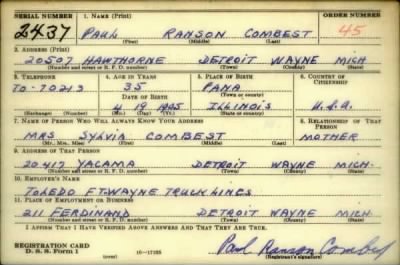 SERIAL NUMBER 1. NAME (Print) ORDER NUMBER
2437 PAUL RANSON COMBEST 45
(First) (Middle) (Last)
2. ADDRESS (Print)
20507 HAWTHORNE DETROIT WAYNE MICH
(Number and street or R. F. D. number) (Town) (County) (State)
3. TELEPHONE 4. AGE IN YEARS 5. PLACE OF BIRTH 6. COUNTRY OF CITIZENSHIP
35 PANA
TO-70213 DATE OF BIRTH (Town or county)
4 19 1905 ILLINOIS U.S.A.
(Exchange) (Number) (Mo.) (Day) (Yr.) (State or country)
7. NAME OF PERSON WHO WILL ALWAYS KNOW YOUR ADDRESS 8. RELATIONSHIP OF THAT PERSON
MRS SYLVIA COMBEST MOTHER
(Mr., Mrs., Miss) (First) (Middle) (Last)
9. ADDRESS OF THAT PERSON
20417 YACAMA DETROIT WAYNE MICH-
(Number and street or R. F. D. number) (Town) (County) (State)
10. EMPLOYER'S NAME
TOLEDO FT-WAYNE TRUCK LINES
11. PLACE OF EMPLOYMENT OR BUSINESS
211 FERDINAND DETROIT WAYNE MICH
(Number and street or R. F. D. number) (Town) (County) (State)
I AFFIRM THAT I HAVE VERIFIED ABOVE ANSWERS AND THAT THEY ARE TRUE.
REGISTRATION CARD
D. S. S. Form 1 (over) 16-17105 Paul Ranson Combest
(Registrant's signature)